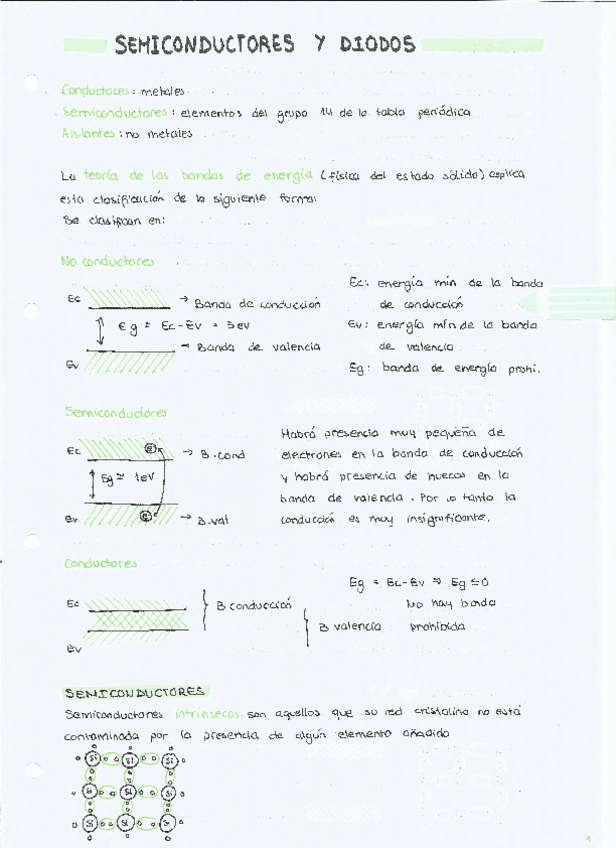 SEMICONDUCTORES Y DIODOS
Conductores: metales
Semiconductores: elementos del grupo 14 de la tabla periódica
Aislantes: no metales
La teoría de las bandas de energía (física del estado sólido) explica
esta clasificación de la siguiente forma:
Se clasifican en:
No conductores
Ec → Banda de conducción
Eg = Ec-Ev = 3ev
Ev → Banda de valencia
Ec: energía mín de la banda
de conducción
Ev: energía mín de la banda
de valencia
Eg: banda de energía prohi.
Semiconductores
Ec → B.cond
Eg ≃ 1eV
Ev → B.val
Habrá presencia muy pequeña de
electrones en la banda de conducción
y habrá presencia de huecos en la
banda de valencia. Por lo tanto la
conducción es muy insignificante.
Conductores
Ec
Ev
B conducción
B valencia
Eg = Ec-Ev ⇒ Eg ≤ 0
No hay banda
prohibida
SEMICONDUCTORES
Semiconductores intrínsecos: son aquellos que su red cristalina no está
contaminada por la presencia de algún elemento añadido
Si Si Si
Si Si Si
Si Si Si
1